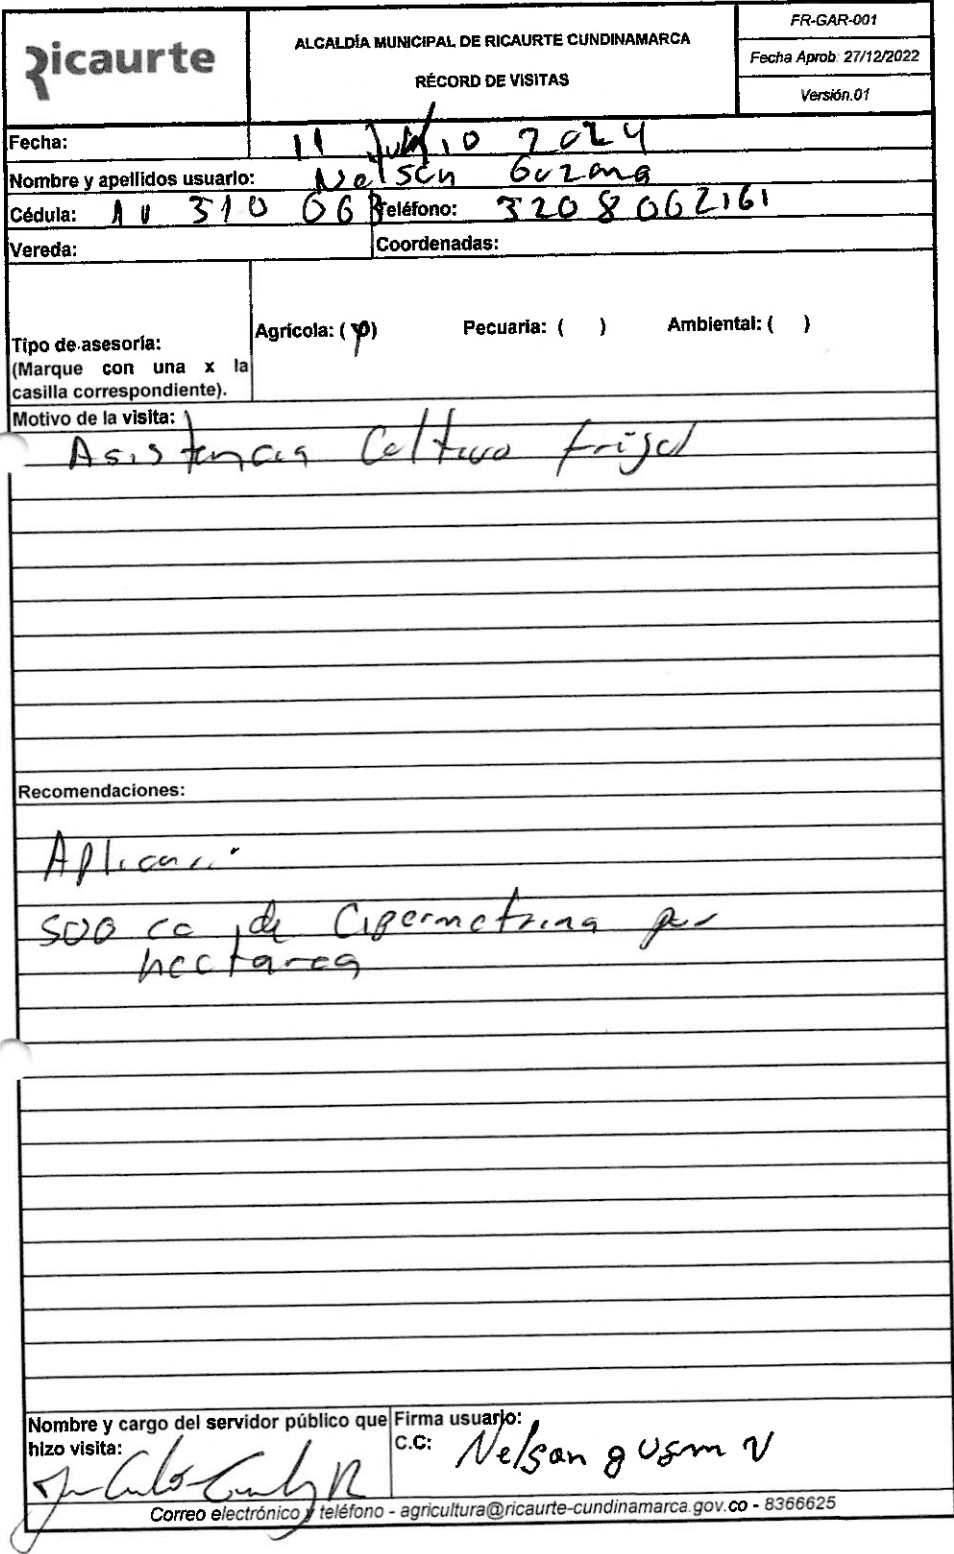 Ricaurte
ALCALDÍA MUNICIPAL DE RICAURTE CUNDINAMARCA
RÉCORD DE VISITAS
FR-GAR-001
Fecha Aprob: 27/12/2022
Versión.01
Fecha: 11 Julio 2024
Nombre y apellidos usuario: Nelson Guzma
Cédula: 310 063 Teléfono: 3208062161
Vereda: Coordenadas:
Agrícola: ( ) Pecuaria: ( ) Ambiental: ( )
Tipo de asesoría:
(Marque con una x la
casilla correspondiente).
Motivo de la visita:
Asistencia Cultivo frijol
Recomendaciones:
Aplicar
500 cc de Cipermetrina por
hectarea
Nombre y cargo del servidor público que
hizo visita:
Firma usuario:
C.C: Nelson
Correo electrónico y teléfono - agricultura@ricaurte-cundinamarca.gov.co - 8366625